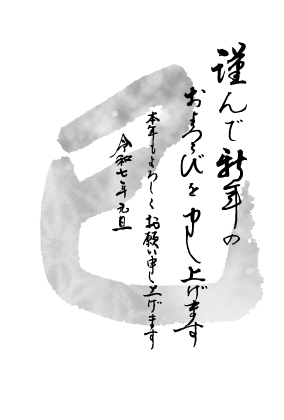 謹んで新年の
およろこびを申し上げます
本年もよろしくお願い申し上げます
令和七年元旦
巳